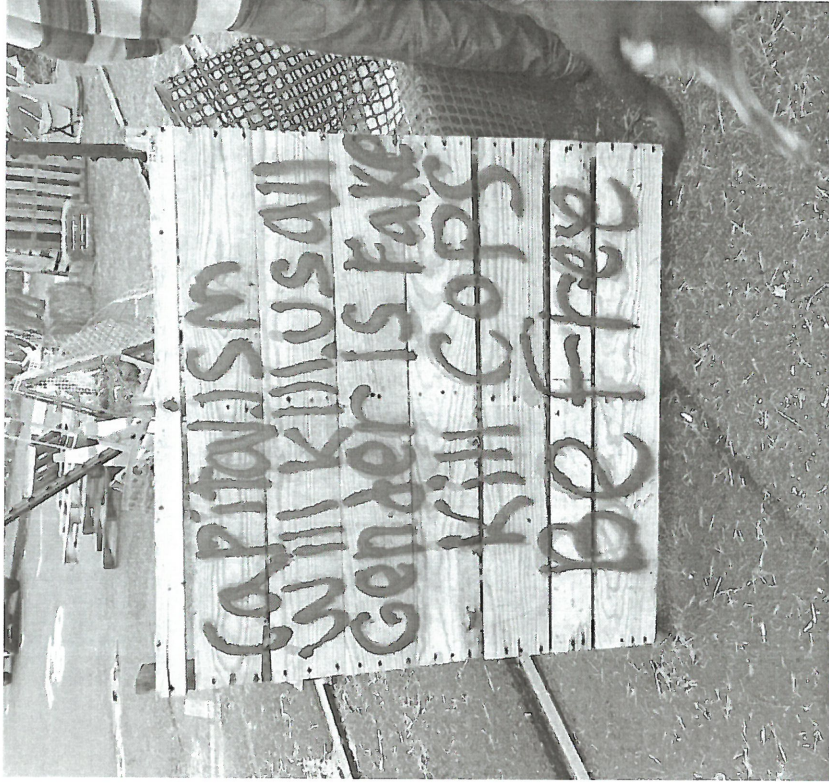 CAPITALISM
Will Kill us all
Gender is Fake
Kill Cops
Be Free